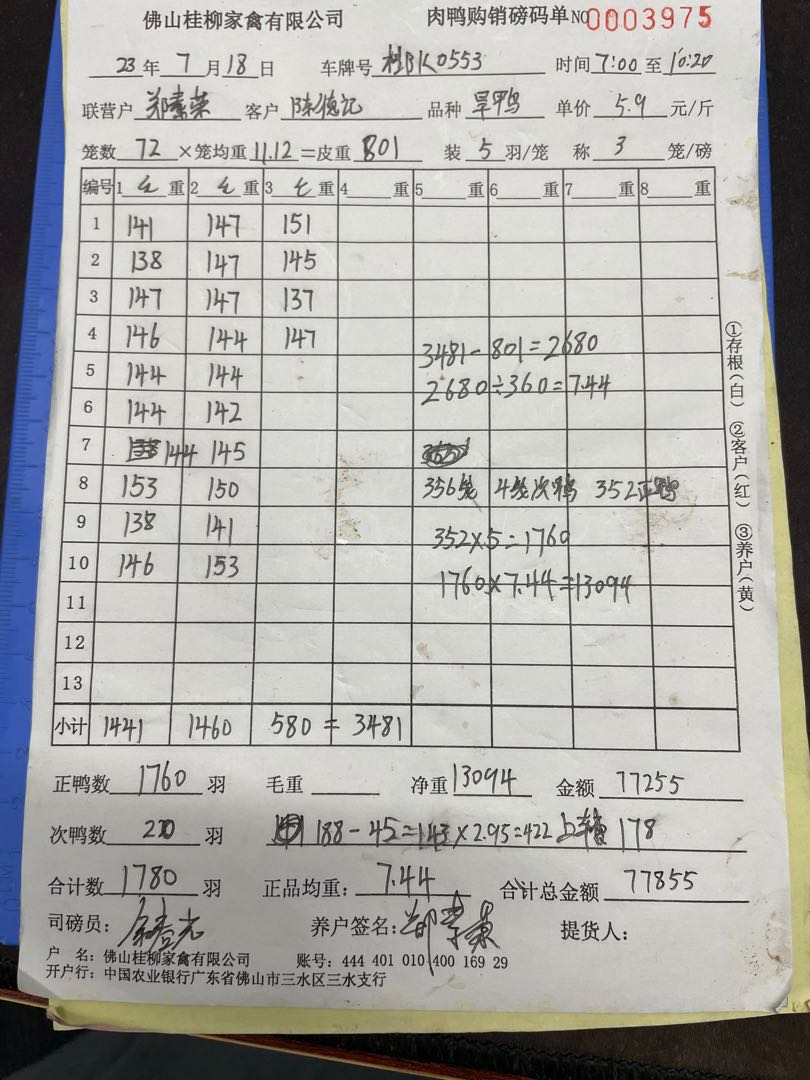 佛山桂柳家禽有限公司 肉鸭购销磅码单 NO 0003975
23年7月18日 车牌号 桂BK0553 时间 7:00 至 10:20
联营户 郑素荣 客户 陈德记 品种 旱鸭 单价 5.9 元/斤
笼数 72 ×笼均重 11.12 =皮重 801 装 5 羽/笼 称 3 笼/磅
编号 1 重 2 重 3 重 4 重 5 重 6 重 7 重 8 重
1 141 147 151
2 138 147 145
3 147 147 137
4 146 144 147
3481-801=2680
5 144 144
2680÷360=7.44
6 144 142
7 144 145
8 153 150 356笼 4笼次鸭 352正鸭
9 138 141 352×5=1760
10 146 153 1760×7.44=13094
11
12
13
小计 1441 1460 580 = 3481
正鸭数 1760 羽 毛重 净重 13094 金额 77255
次鸭数 20 羽 188-45=143×2.95=422 上车 178
合计数 1780 羽 正品均重: 7.44 合计总金额 77855
司磅员: 养户签名: 提货人:
户 名: 佛山桂柳家禽有限公司 账号: 444 401 010 400 169 29
开户行: 中国农业银行广东省佛山市三水区三水支行
①存根(白) ②客户(红) ③养户(黄)